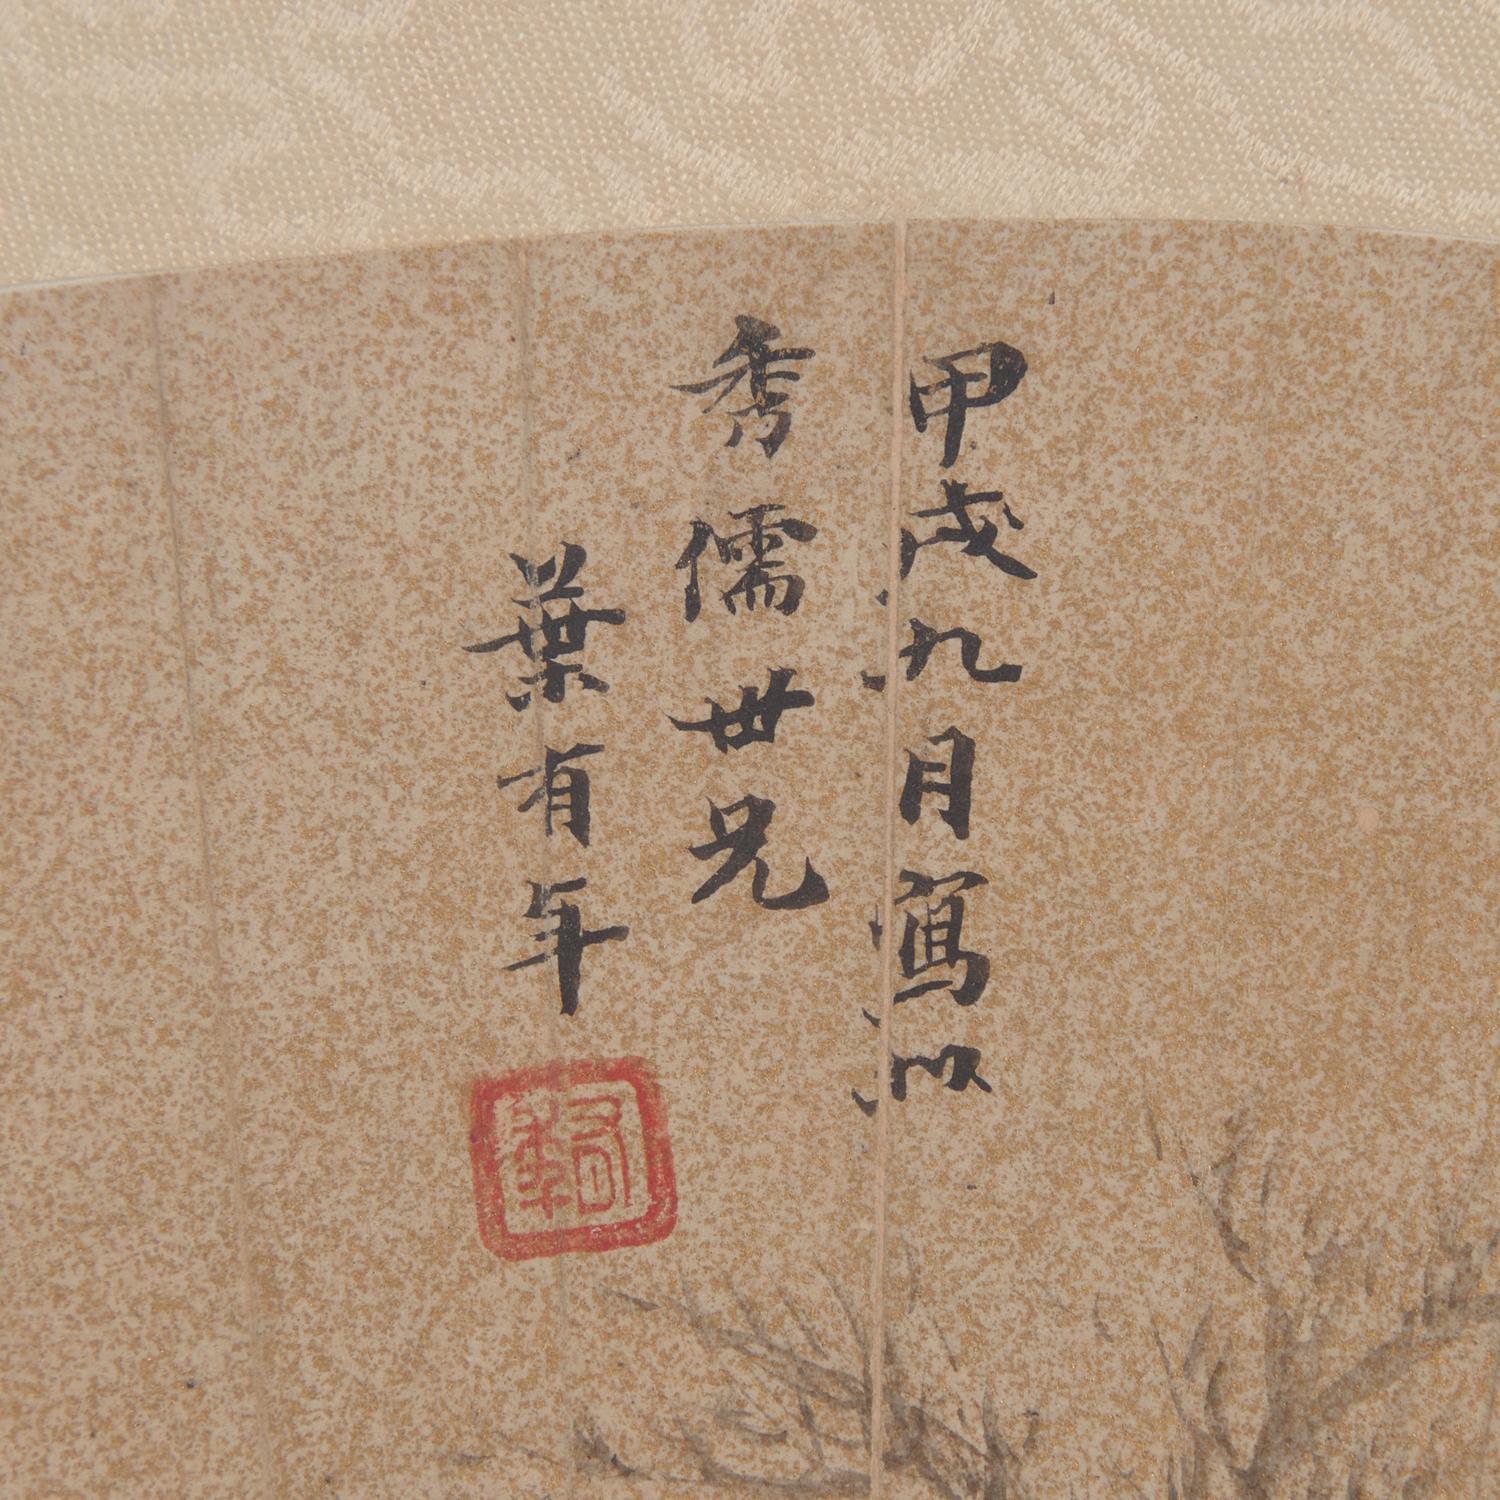 甲戌九月寫似
秀儒世兄
葉有年
有年